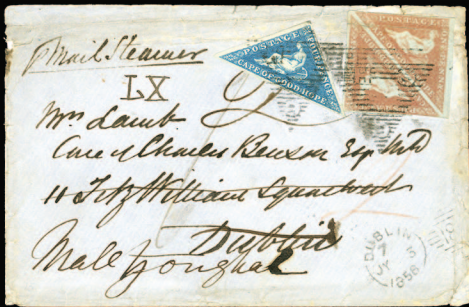 p Mail Steamer
LX
POSTAGE
FOUR PENCE
CAPE OF GOOD HOPE
POSTAGE
2
Mrs Lamb
Care of Charles Benson Esq M.D
11 Fitz William Square West
Dublin
Mall Youghal
DUBLIN
JY 3
1858